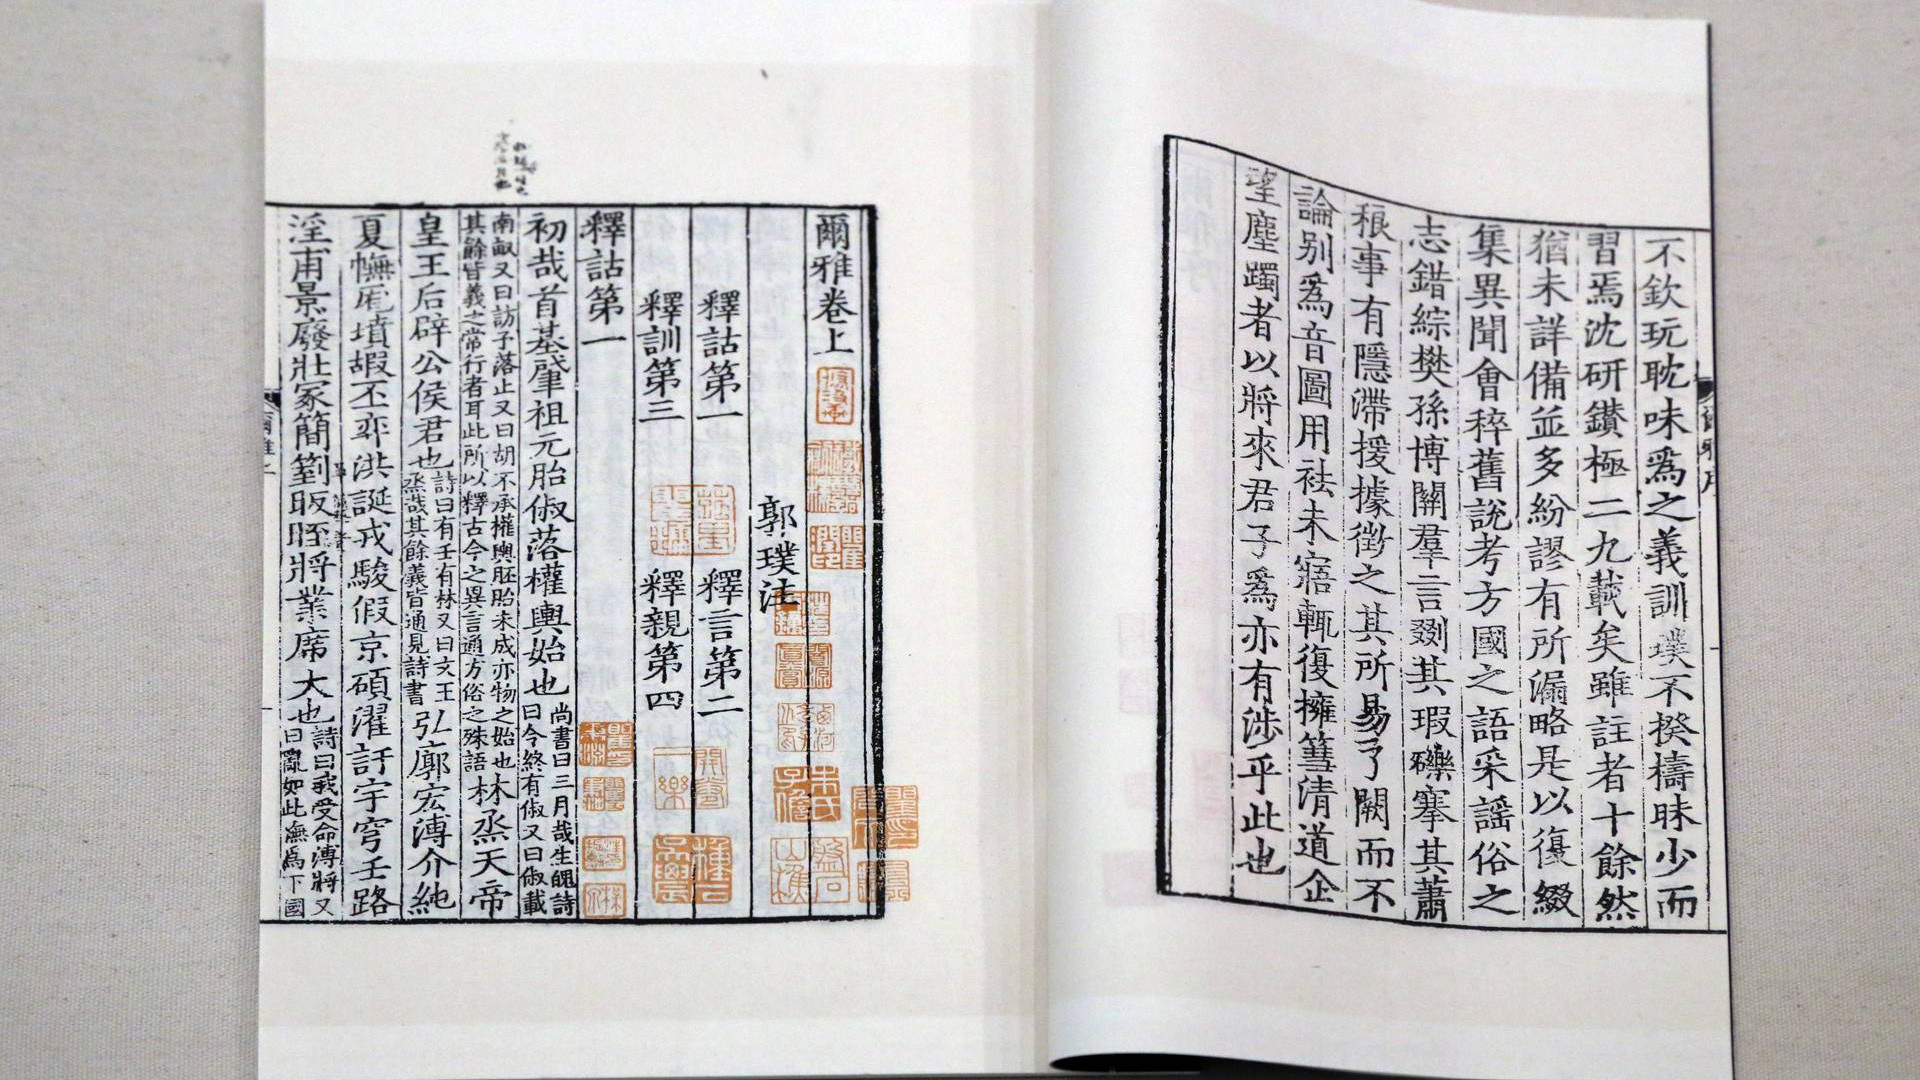 不欽玩耽味爲之義訓璞不揆檮昧少而
習焉沈研鑚極二九載矣雖註者十餘然
猶未詳備並多紛謬有所漏略是以復綴
集異聞會稡舊說考方國之語采謡俗之
志錯綜樊孫博關羣言剟其瑕礫搴其蕭
稂事有隱滯援據徵之其所易了闕而不
論别爲音圖用袪未寤輒復擁篲清道企
望塵躅者以將來君子爲亦有涉乎此也
爾雅卷上
郭璞注
釋詁第一 釋言第二
釋訓第三 釋親第四
釋詁第一
初哉首基肈祖元胎俶落權輿始也
尚書曰三月哉生魄詩
曰令終有俶又曰俶載
南畝又曰訪予落止又曰胡不承權輿胚胎未成亦物之始也
其餘皆義之常行者耳此所以釋古今之異言通方俗之殊語
林烝天帝
皇王后辟公侯君也
詩曰有壬有林又曰文王
烝哉其餘義皆通見詩書
弘廓宏溥介純
夏幠厖墳嘏丕弈洪誕戎駿假京碩濯訏宇穹壬路
淫甫景廢壯冢簡箌昄晊將業席大也
詩曰我受命溥將又
曰亂如此幠爲下國